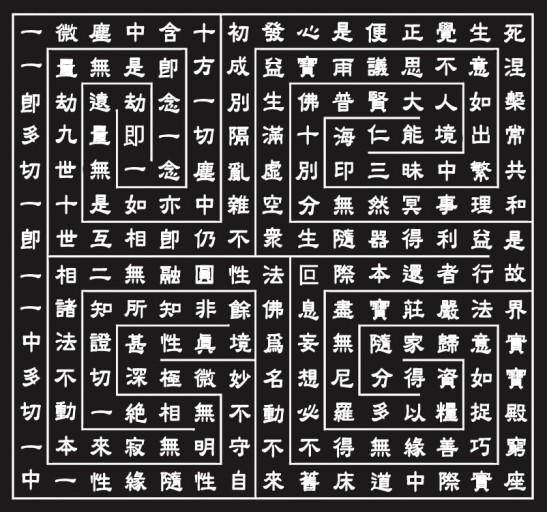 一微塵中含十初發心是便正覺生死
一量無是卽方成益寶雨議思不意涅
卽劫遠劫念一別生佛普賢大人如槃
多九量即一切隔滿十海仁能境出常
切世無一念塵亂虛別印三昧中繁共
一十是如亦中雜空分無然冥事理和
卽世互相卽仍不衆生隨器得利益是
一相二無融圓性法叵際本還者行故
一諸知所知非餘佛息盡寶莊嚴法界
中法證甚性眞境爲妄無隨家歸意實
多不切深極微妙名想尼分得資如寶
切動一絶相無不動必羅多以糧捉殿
一本來寂無明守不不得無緣善巧窮
中一性緣隨性自來舊床道中際實座